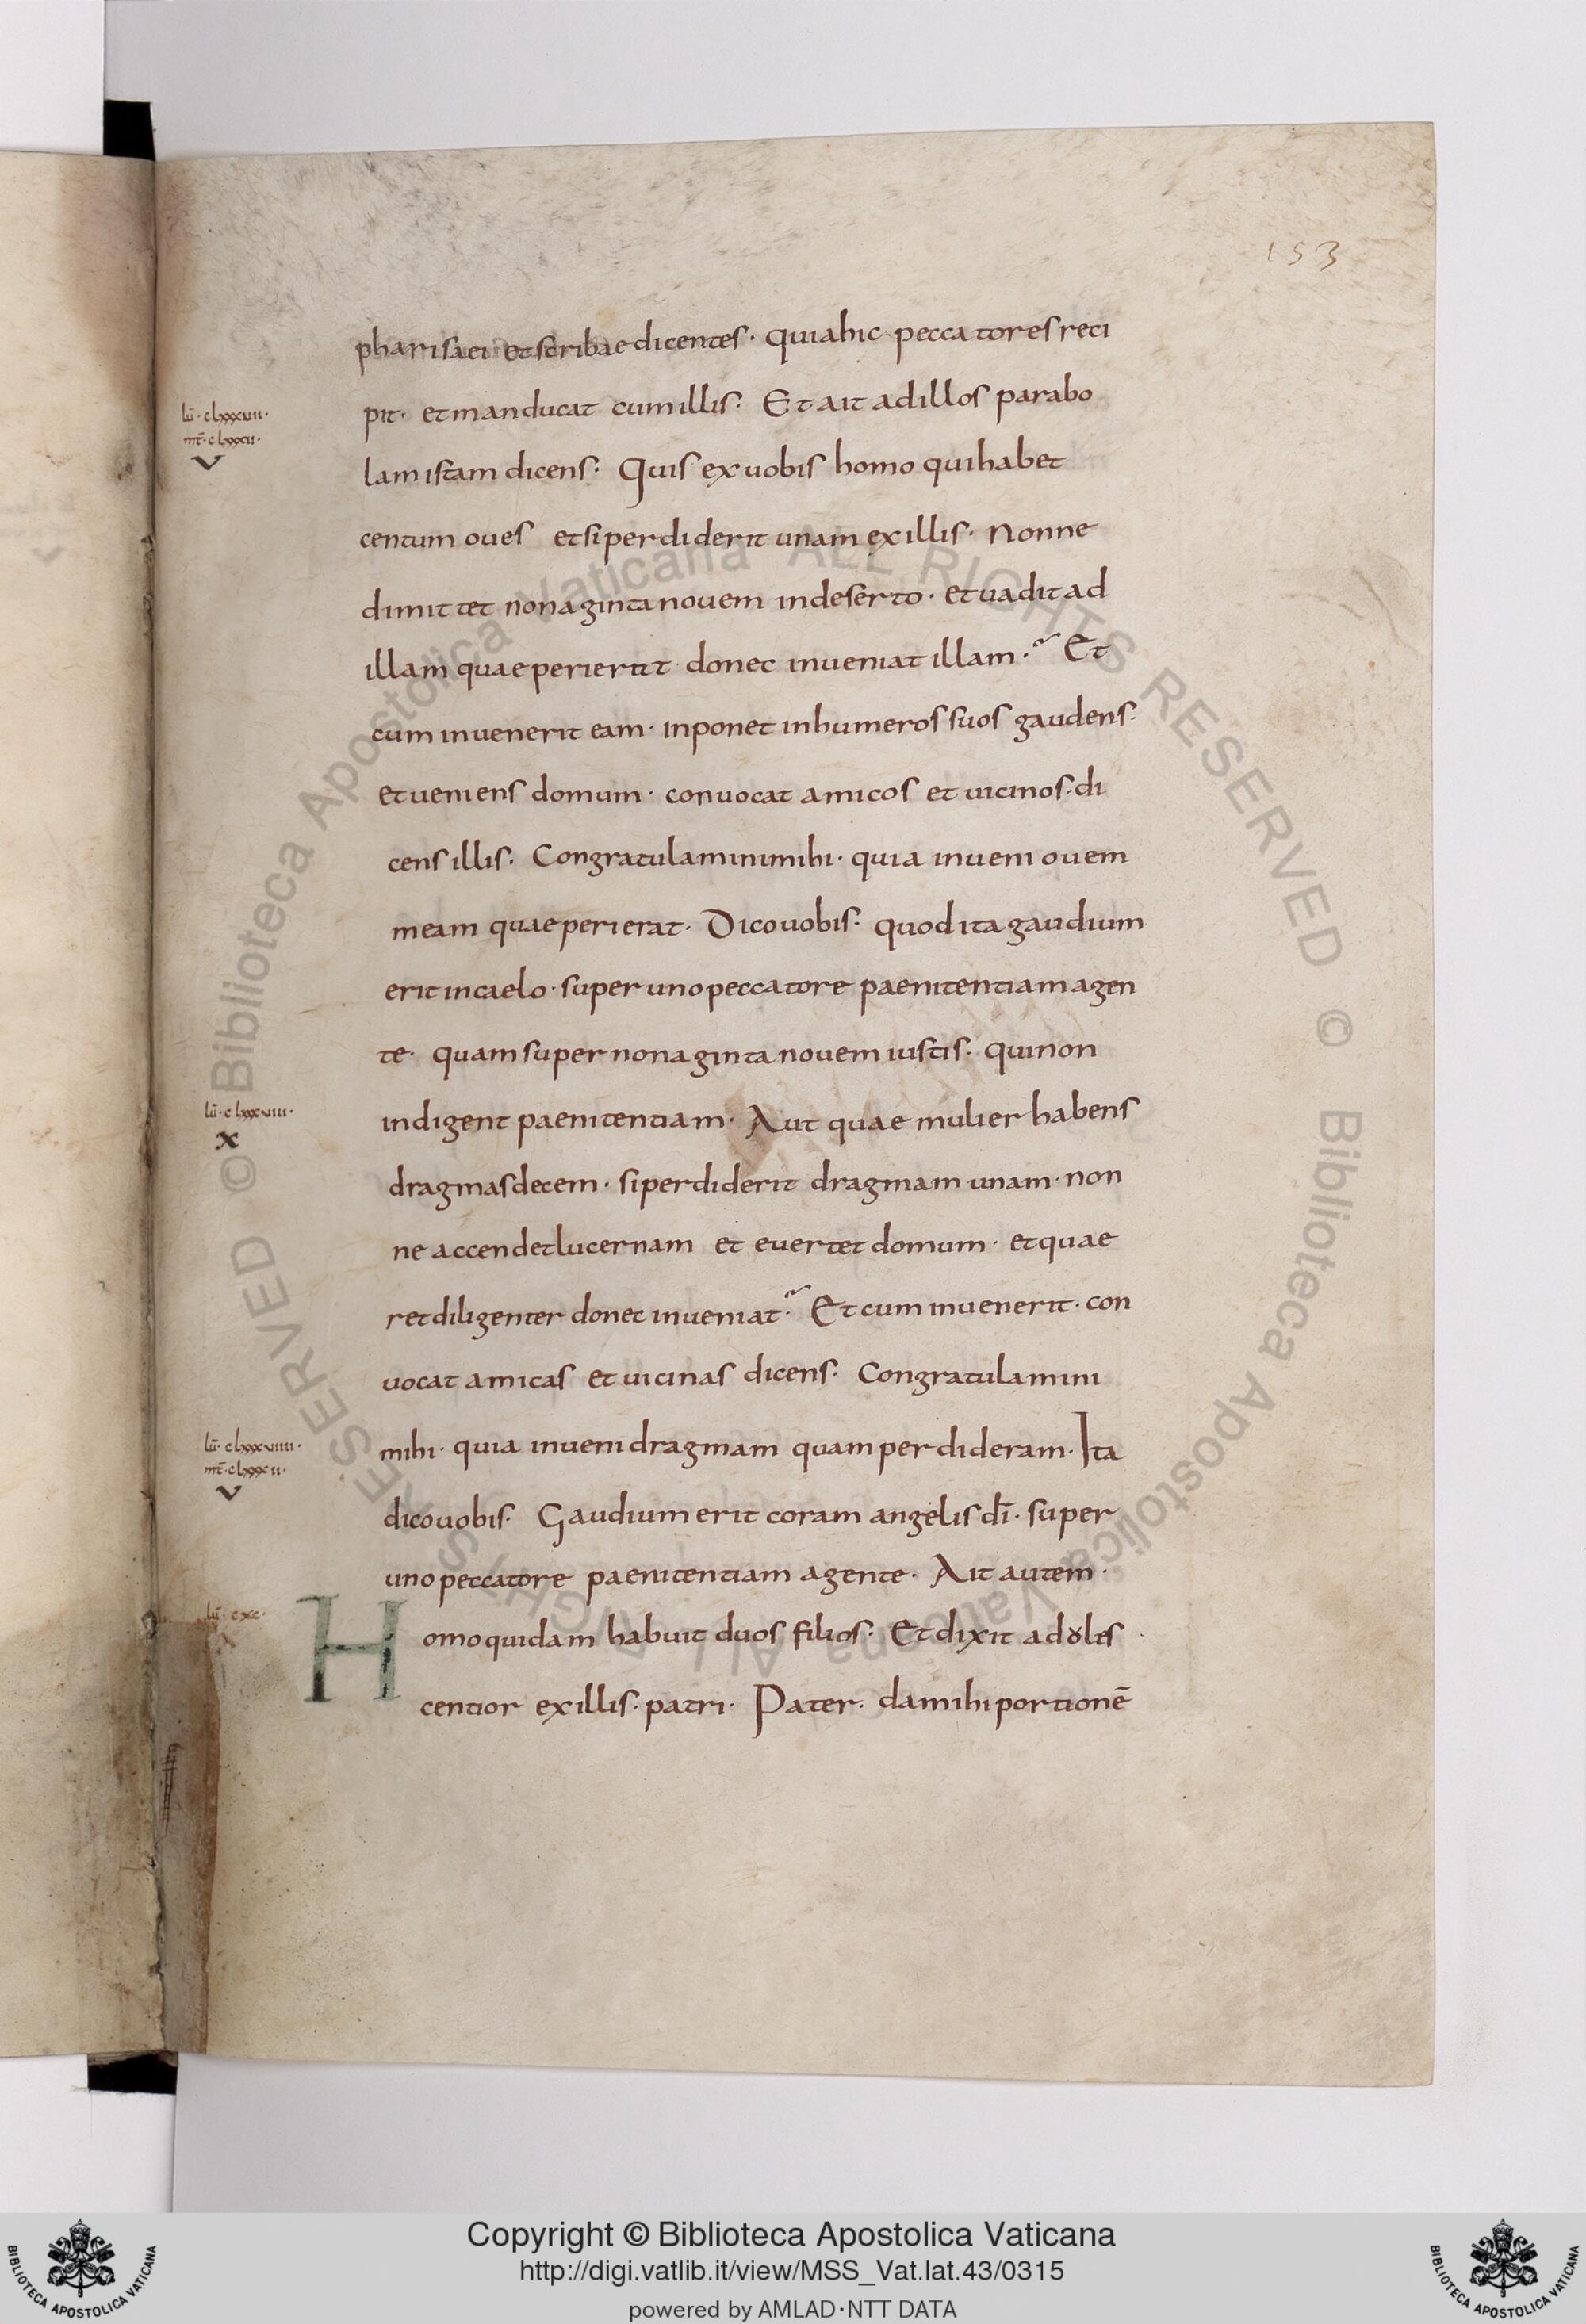 153
pharisaei et scribae dicentes· quia hic peccatores reci
lū·clxxxvii·
mt̄·clxxxii·
v
pit· et manducat cum illis· Et ait ad illos parabo
lam istam dicens· Quis ex uobis homo qui habet
centum oues et si perdiderit unam ex illis· Nonne
dimittet nonaginta nouem in deserto· et uadit ad
illam quae perierat donec inueniat illam· Et
cum inuenerit eam· inponet in humeros suos gaudens·
et ueniens domum· conuocat amicos et uicinos· di
cens illis· Congratulamini mihi· quia inueni ouem
meam quae perierat· Dico uobis· quod ita gaudium
erit in caelo· super uno peccatore paenitentiam agen
te· quam super nonaginta nouem iustis· qui non
lū·clxxxviii·
x
indigent paenitentiam· Aut quae mulier habens
dragmas decem· si perdiderit dragmam unam· non
ne accendet lucernam et euertet domum· et quae
ret diligenter donec inueniat· Et cum inuenerit· con
uocat amicas et uicinas dicens· Congratulamini
lū·clxxxviiii·
mt̄·clxxxii·
v
mihi· quia inueni dragmam quam perdideram· Ita
dico uobis· Gaudium erit coram angelis dī· super
uno peccatore paenitentiam agente· Ait autem·
lū·cxc·
x
Homo quidam habuit duos filios· Et dixit adoles
centior ex illis· patri· Pater· da mihi portionē
© Biblioteca Apostolica Vaticana ALL RIGHTS RESERVED © Biblioteca Apostolica Vaticana ALL RIGHTS RESERVED
Copyright © Biblioteca Apostolica Vaticana
http://digi.vatlib.it/view/MSS_Vat.lat.43/0315
powered by AMLAD·NTT DATA
BIBLIOTECA APOSTOLICA VATICANA
BIBLIOTECA APOSTOLICA VATICANA